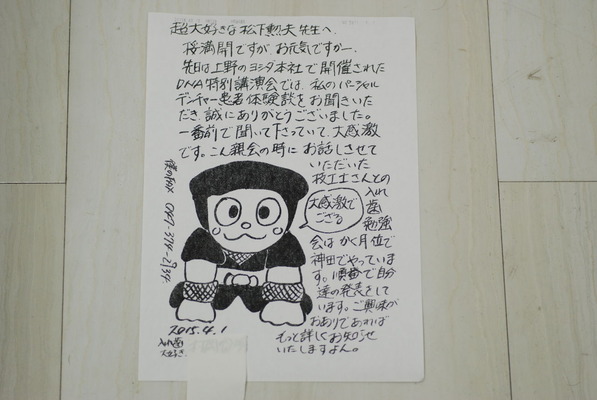 超大好きな松下勲夫先生へ、
桜満開ですが お元気ですかー、
先日は上野のヨシダ本社で開催された
DNA特別講演会では、私のパーシャル
デンチャー患者体験談をお聞きいた
だき、誠にありがとうございました。
一番前で聞いて下さっていて、大感激
です。こん親会の時に お話しさせて
いただいた
技工士さんとの
入れ歯勉強
会は かく月位で
神田でやっていま
す。順番で自分
達の発表をして
います。ご興味が
おありであれば
もっと詳しくお知らせ
いたしますよん。
大感激で
ござる
2015.4.1
入れ歯
大好き